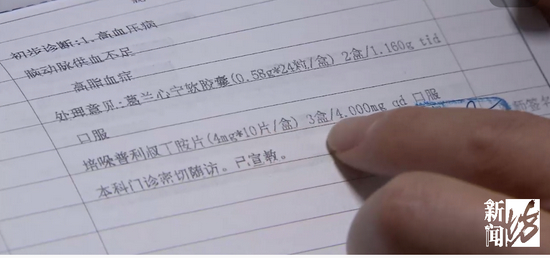 初步诊断:1.高血压病
脑动脉供血不足
高脂血症
处理意见:葛兰心宁软胶囊(0.58g*24粒/盒) 2盒/1.160g tid
口服
培哚普利叔丁胺片(4mg*10片/盒) 3盒/4.000mg qd 口服
本科门诊密切随访。已宣教。
新闻坊